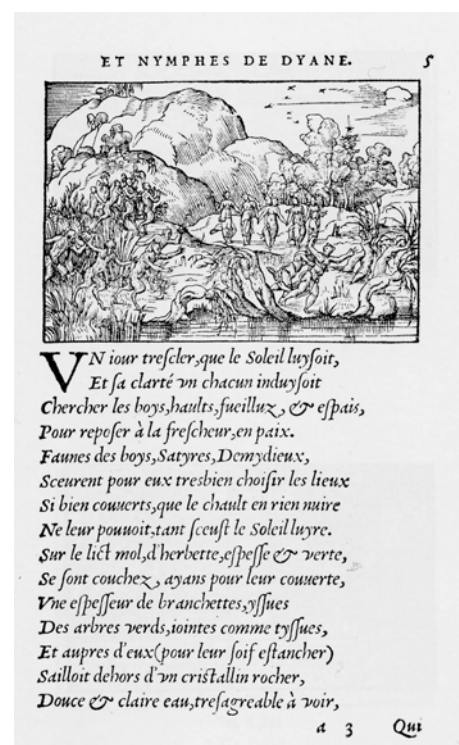 ET NYMPHES DE DYANE. 5
VN iour treſcler,que le Soleil luyſoit,
Et ſa clarté vn chacun induyſoit
Chercher les boys,haults,fueilluz, & eſpais,
Pour repoſer à la freſcheur,en paix.
Faunes des boys,Satyres,Demydieux,
Sceurent pour eux tresbien choiſir les lieux
Si bien couuerts,que le chault en rien nuire
Ne leur pouuoit,tant ſceuſt le Soleil luyre.
Sur le lict mol,d'herbette,eſpeſſe & verte,
Se ſont couchez, ayans pour leur couuerte,
Vne eſpeſſeur de branchettes,yſſues
Des arbres verds,iointes comme tyſſues,
Et aupres d'eux(pour leur ſoif eſtancher)
Sailloit dehors d'vn criſtallin rocher,
Douce & claire eau,treſagreable à voir,
a 3 Qui